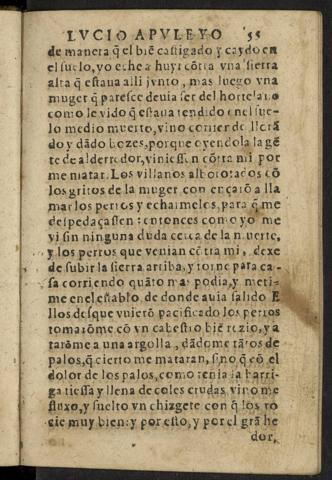 LVCIO APVLEYO 55
de manera q̃ el biẽ castigado y caydo en
el suelo, yo eche a huyr cõtra vna sierra
alta q̃ estaua alli junto, mas luego vna
muger q̃ paresce deuia ser del hortelano
como le vido q̃ estaua tendido enel sue-
lo medio muerto, vino correr de llorã
do y dãdo bozes, porque oyendola la gẽ
te de alderredor, viniessẽ cõtra mi por
me matar. Los villanos alborotados cõ
los gritos de la muger començarõ a lla
mar los perros y echarmelos, para q̃ me
despedaçassen: entonces como yo me
vi sin ninguna duda cerca de la muerte,
y los perros que venian cõtra mi, dexe
de subir la sierra arriba, y torne para ca-
sa corriendo quãto mas podia, y meti-
me enel establo de donde auia salido E
llos desque vuierõ pacificado los perros
tomarõme cõ vn cabestro biẽ rezio, y a
tarõme a una argolla, dãdome tãtos de
palos, q̃ cierto me mataran, sino q̃ cõ el
dolor de los palos, como tenia la barri-
ga tiessa y llena de coles crudas, vino me
fluxo, y suelto vn chizgete con q̃ los ro
cie muy bien: y por esto, y por el grã he
dor,